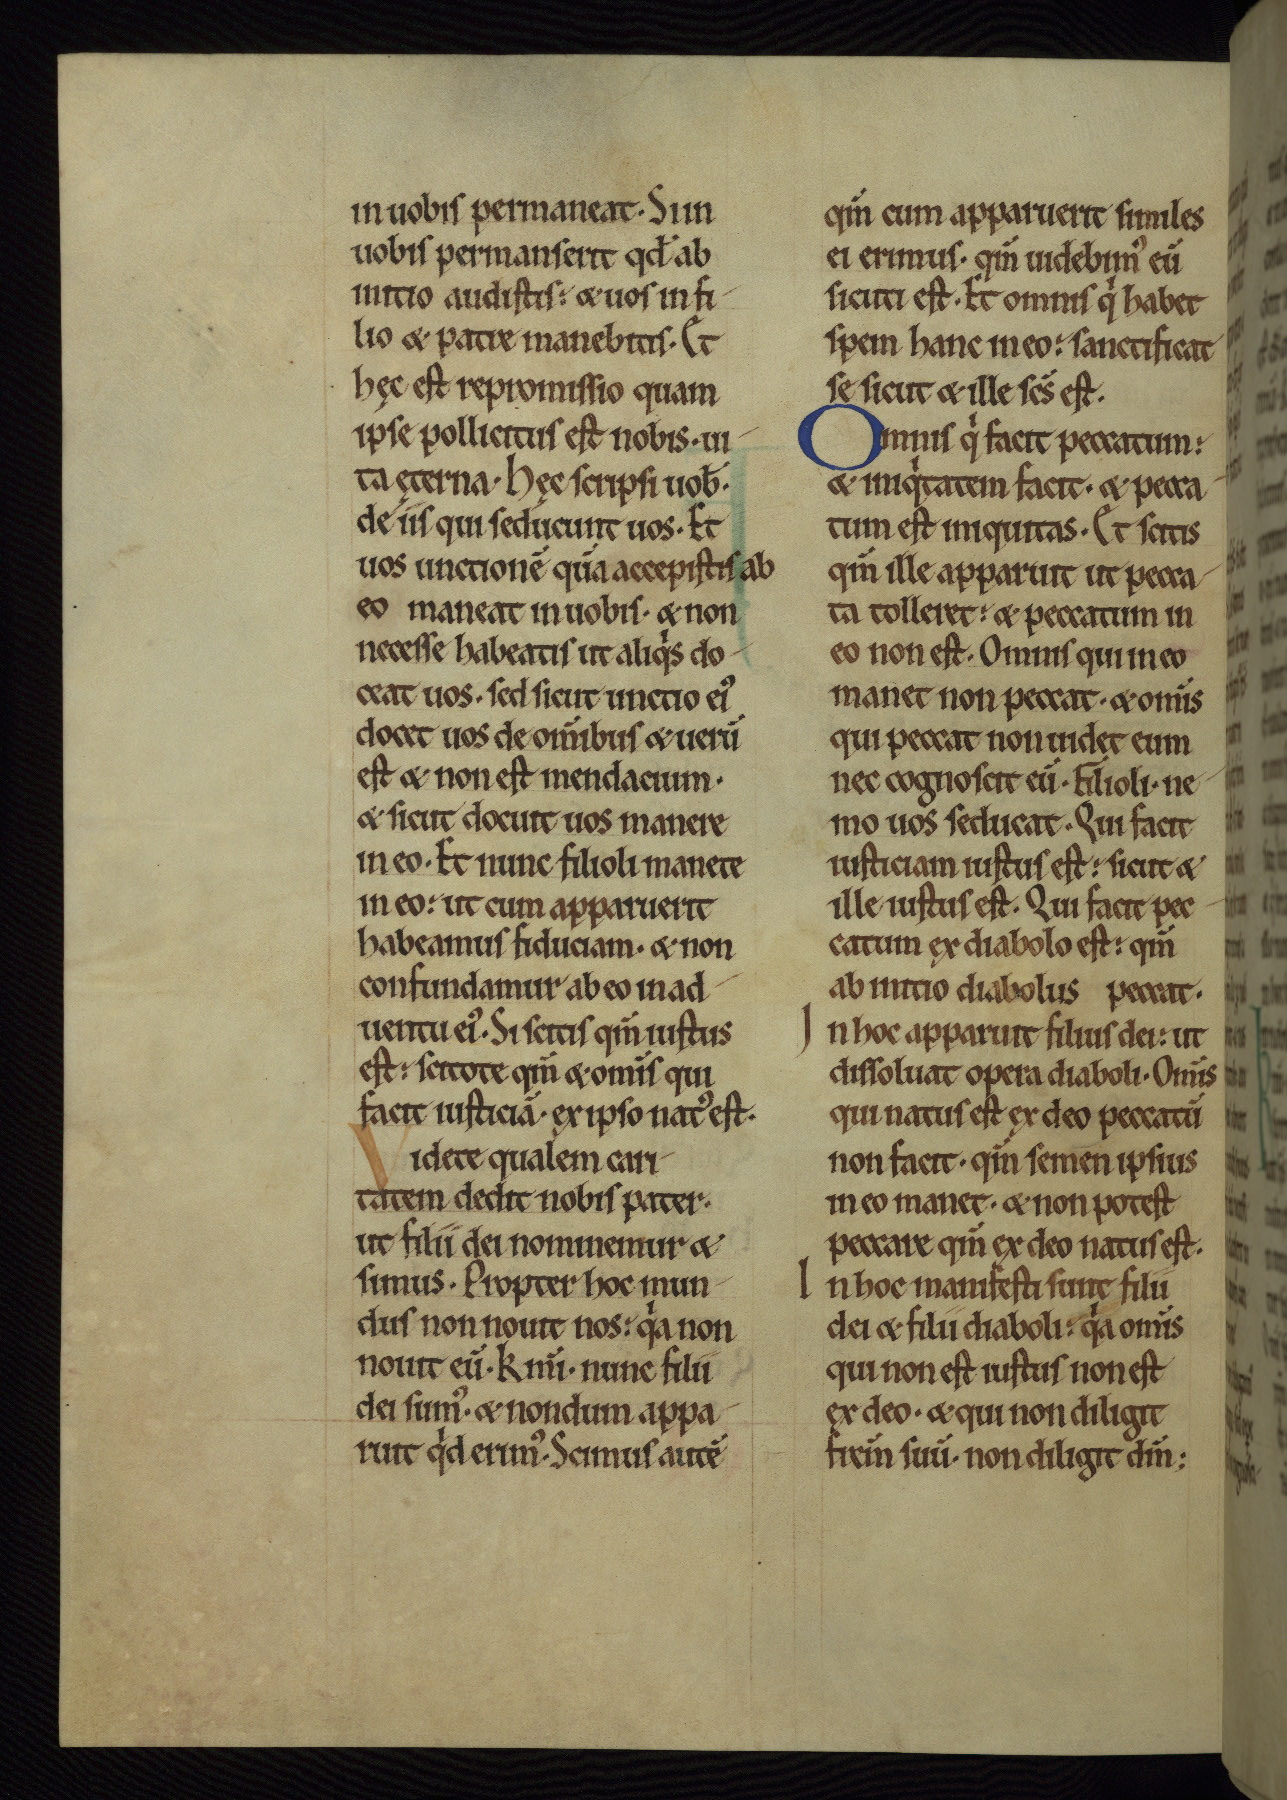 in uobis permaneat. Si in
uobis permanserit qd̄ ab
initio audistis: & uos in fi-
lio & patre manebitis. Et
hęc est repromissio quam
ipse pollicitus est nobis. ui-
ta ęterna. Hęc scripsi uob̄.
de iis qui seducunt uos. Et
uos unctionē quā accepistis ab
eo maneat in uobis. & non
necesse habeatis ut aliqͥs do-
ceat uos. sed sicut unctio ei᾿
docet uos de om̄ibus & uerū
est & non est mendacium.
& sicut docuit uos manere
in eo. Et nunc filioli manete
in eo: ut cum apparuerit
habeamus fiduciam. & non
confundamur ab eo in ad-
uentu ei᾿. Si scitis qm̄ iustus
est: scitote qm̄ & om̄is qui
facit iusticiā. ex ipso nat᾿ est.
Videte qualem cari-
tatem dedit nobis pater.
ut filii dei nominemur &
simus. Propter hoc mun-
dus non nouit nos: qͥa non
nouit eū. Kmī. nunc filii
dei sum᾿. & nondum appa-
ruit qͥd erim᾿. Scimus autē
qm̄ cum apparuerit similes
ei erimus. qm̄ uidebim᾿ eū
sicuti est. Et omnis qͥ habet
spem hanc in eo: sanctificat
se sicut & ille scs̄ est.
Omnis qͥ facit peccatum:
& iniqͥtatem facit. & pecca-
tum est iniquitas. Et scitis
qm̄ ille apparuit ut pecca-
ta tolleret: & peccatum in
eo non est. Omnis qui in eo
manet non peccat. & om̄is
qui peccat non uidet eum
nec cognoscit eū. Filioli. ne-
mo uos seducat. Qui facit
iusticiam iustus est: sicut &
ille iustus est. Qui facit pec-
catum ex diabolo est: qm̄
ab initio diabolus peccat.
In hoc apparuit filius dei: ut
dissoluat opera diaboli. Om̄is
qui natus est ex deo peccatū
non facit. qm̄ semen ipsius
in eo manet. & non potest
peccare qm̄ ex deo natus est.
In hoc manifesti sunt filii
dei & filii diaboli: qͥa om̄is
qui non est iustus non est
ex deo. & qui non diligit
frem̄ suū. non diligit dm̄: